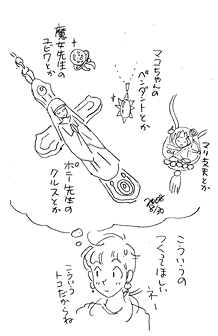 魔女先生の
ユビワとか
マコちゃんの
ペンダントとか
マリ文夫とか
ポニー先生の
クルスとか
2008
8/30
こういうの
つくってほしい
ネー
こういう
トコだからね